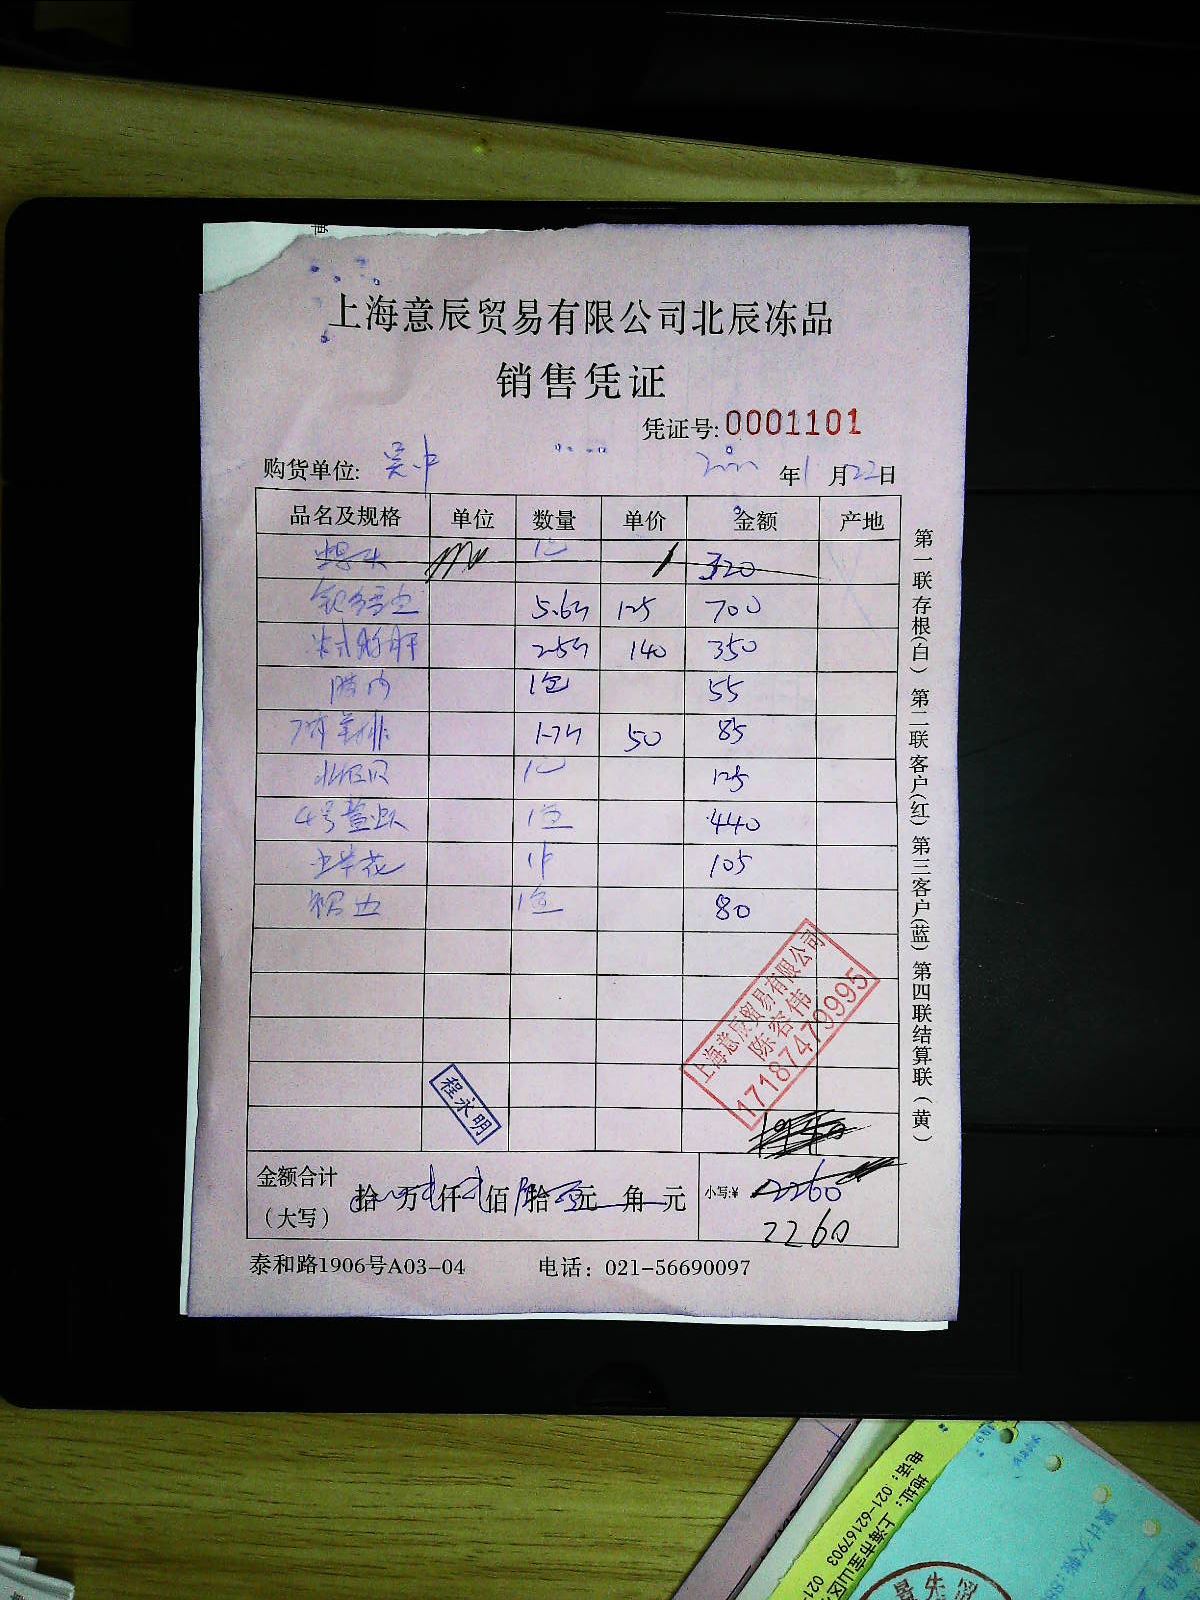 上海意辰贸易有限公司北辰冻品
销售凭证
凭证号:0001101
购货单位: 吴中 年1月22日
品名及规格 单位 数量 单价 金额 产地
320
5.6斤 125 700
法式鹅肝 2.5斤 140 350
腊肉 1包 55
7骨羊排 1.7斤 50 85
北极贝 125
4号 1包 440
105
裙边 1包 80
上海意辰贸易有限公司
陈容伟
17187479995
程永明
金额合计
(大写) 拾 万 仟 佰 拾 元 角 元 小写:¥ 2260
2260
泰和路1906号A03-04 电话:021-56690097
第一联存根(白) 第二联客户(红) 第三客户(蓝) 第四联结算联(黄)
地址:上海市宝山区
电话:021-62167903 021